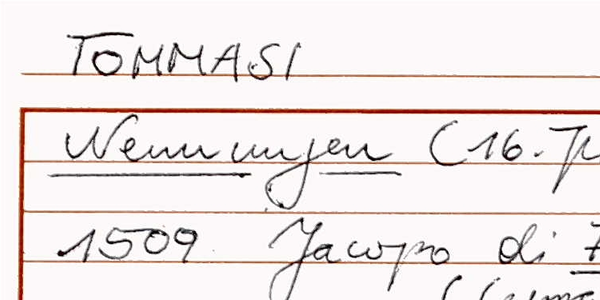 TOMMASI
Nennungen (16. J
1509 Jacopo di